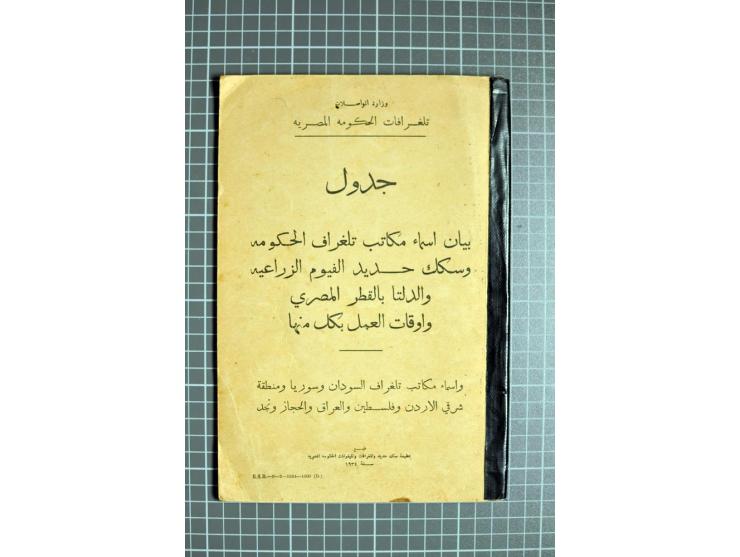 وزارة المواصلات
تلغرافات الحكومه المصريه
جدول
بيان اسماء مكاتب تلغراف الحكومه
وسكك حديد الفيوم الزراعيه
والدلتا بالقطر المصري
واوقات العمل بكل منها
واسماء مكاتب تلغراف السودان وسوريا ومنطقة
شرقي الاردن وفلسطين والعراق والحجاز ونجد
طبع
بمطبعة سكك حديد وتلغرافات وتليفونات الحكومة المصرية
سنة ١٩٣٤